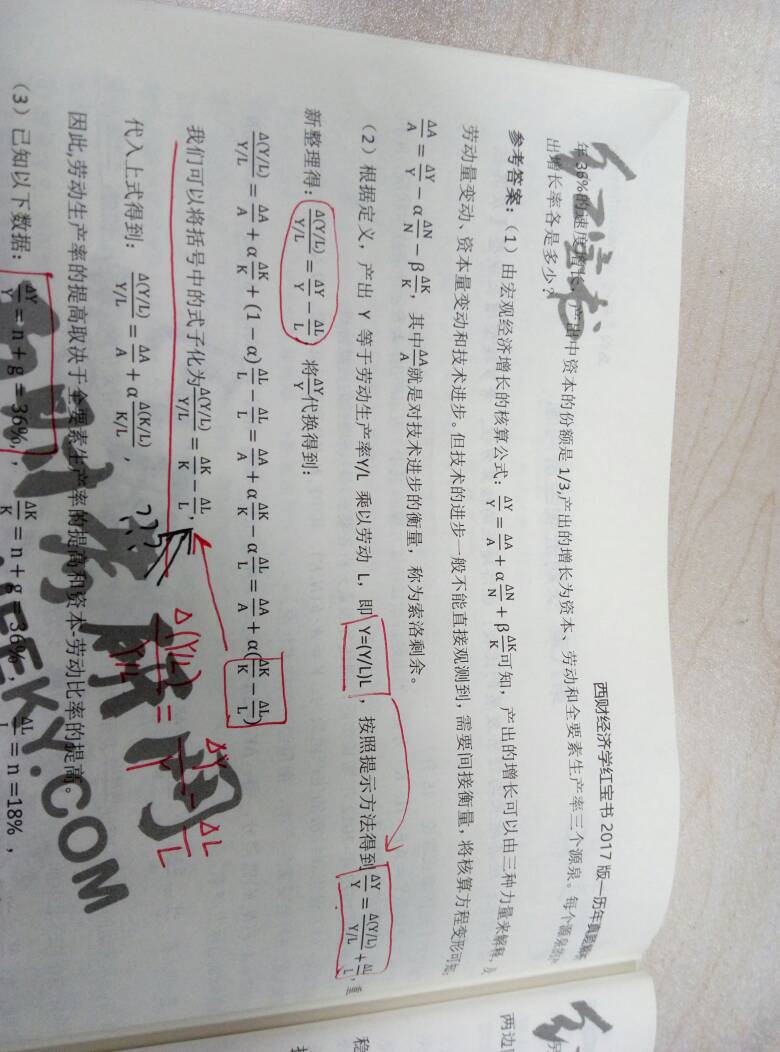 西财经济学红宝书 2017 版—历年真题解析
年 36%的速度增长，产出中资本的份额是 1/3,产出的增长为资本、劳动和全要素生产率三个源泉。每个源泉的
出增长率各是多少？
参考答案：（1）由宏观经济增长的核算公式：ΔY/Y = ΔA/A + α ΔN/N + β ΔK/K 可知，产出的增长可以由三种力量来解释，
劳动量变动、资本量变动和技术进步。但技术的进步一般不能直接观测到，需要间接衡量，将核算方程变形可知：
ΔA/A = ΔY/Y − α ΔN/N − β ΔK/K，其中 ΔA/A 就是对技术进步的衡量，称为索洛剩余。
（2）根据定义，产出 Y 等于劳动生产率Y/L 乘以劳动 L，即 Y=(Y/L)L ，按照提示方法得到 ΔY/Y = Δ(Y/L)/(Y/L) + ΔL/L，重
新整理得：Δ(Y/L)/(Y/L) = ΔY/Y − ΔL/L，将 ΔY/Y 代换得到：
Δ(Y/L)/(Y/L) = ΔA/A + α ΔK/K + (1 − α) ΔL/L − ΔL/L = ΔA/A + α ΔK/K − α ΔL/L = ΔA/A + α(ΔK/K − ΔL/L)
我们可以将括号中的式子化为 Δ(Y/L)/(Y/L) = ΔK/K − ΔL/L，
???
Δ(Y/L)/(Y/L) = ΔY/Y − ΔL/L
代入上式得到：Δ(Y/L)/(Y/L) = ΔA/A + α Δ(K/L)/(K/L)，
因此,劳动生产率的提高取决于全要素生产率的提高和资本-劳动比率的提高。
（3）已知以下数据：ΔY/Y = n + g = 36%，ΔK/K = n + g = 36%，ΔL/L = n =18%，
红宝书
.COM
两边
稳